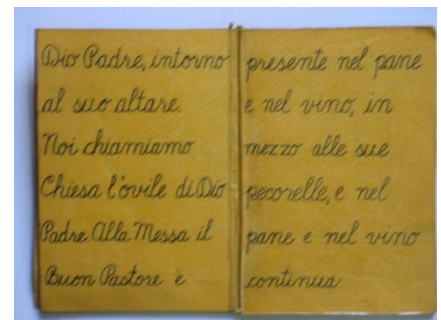 Dio Padre, intorno
al suo altare.
Noi chiamiamo
Chiesa l'ovile di Dio
Padre Alla Messa il
Buon Pastore è
presente nel pane
e nel vino, in
mezzo alle sue
pecorelle, e nel
pane e nel vino
continua